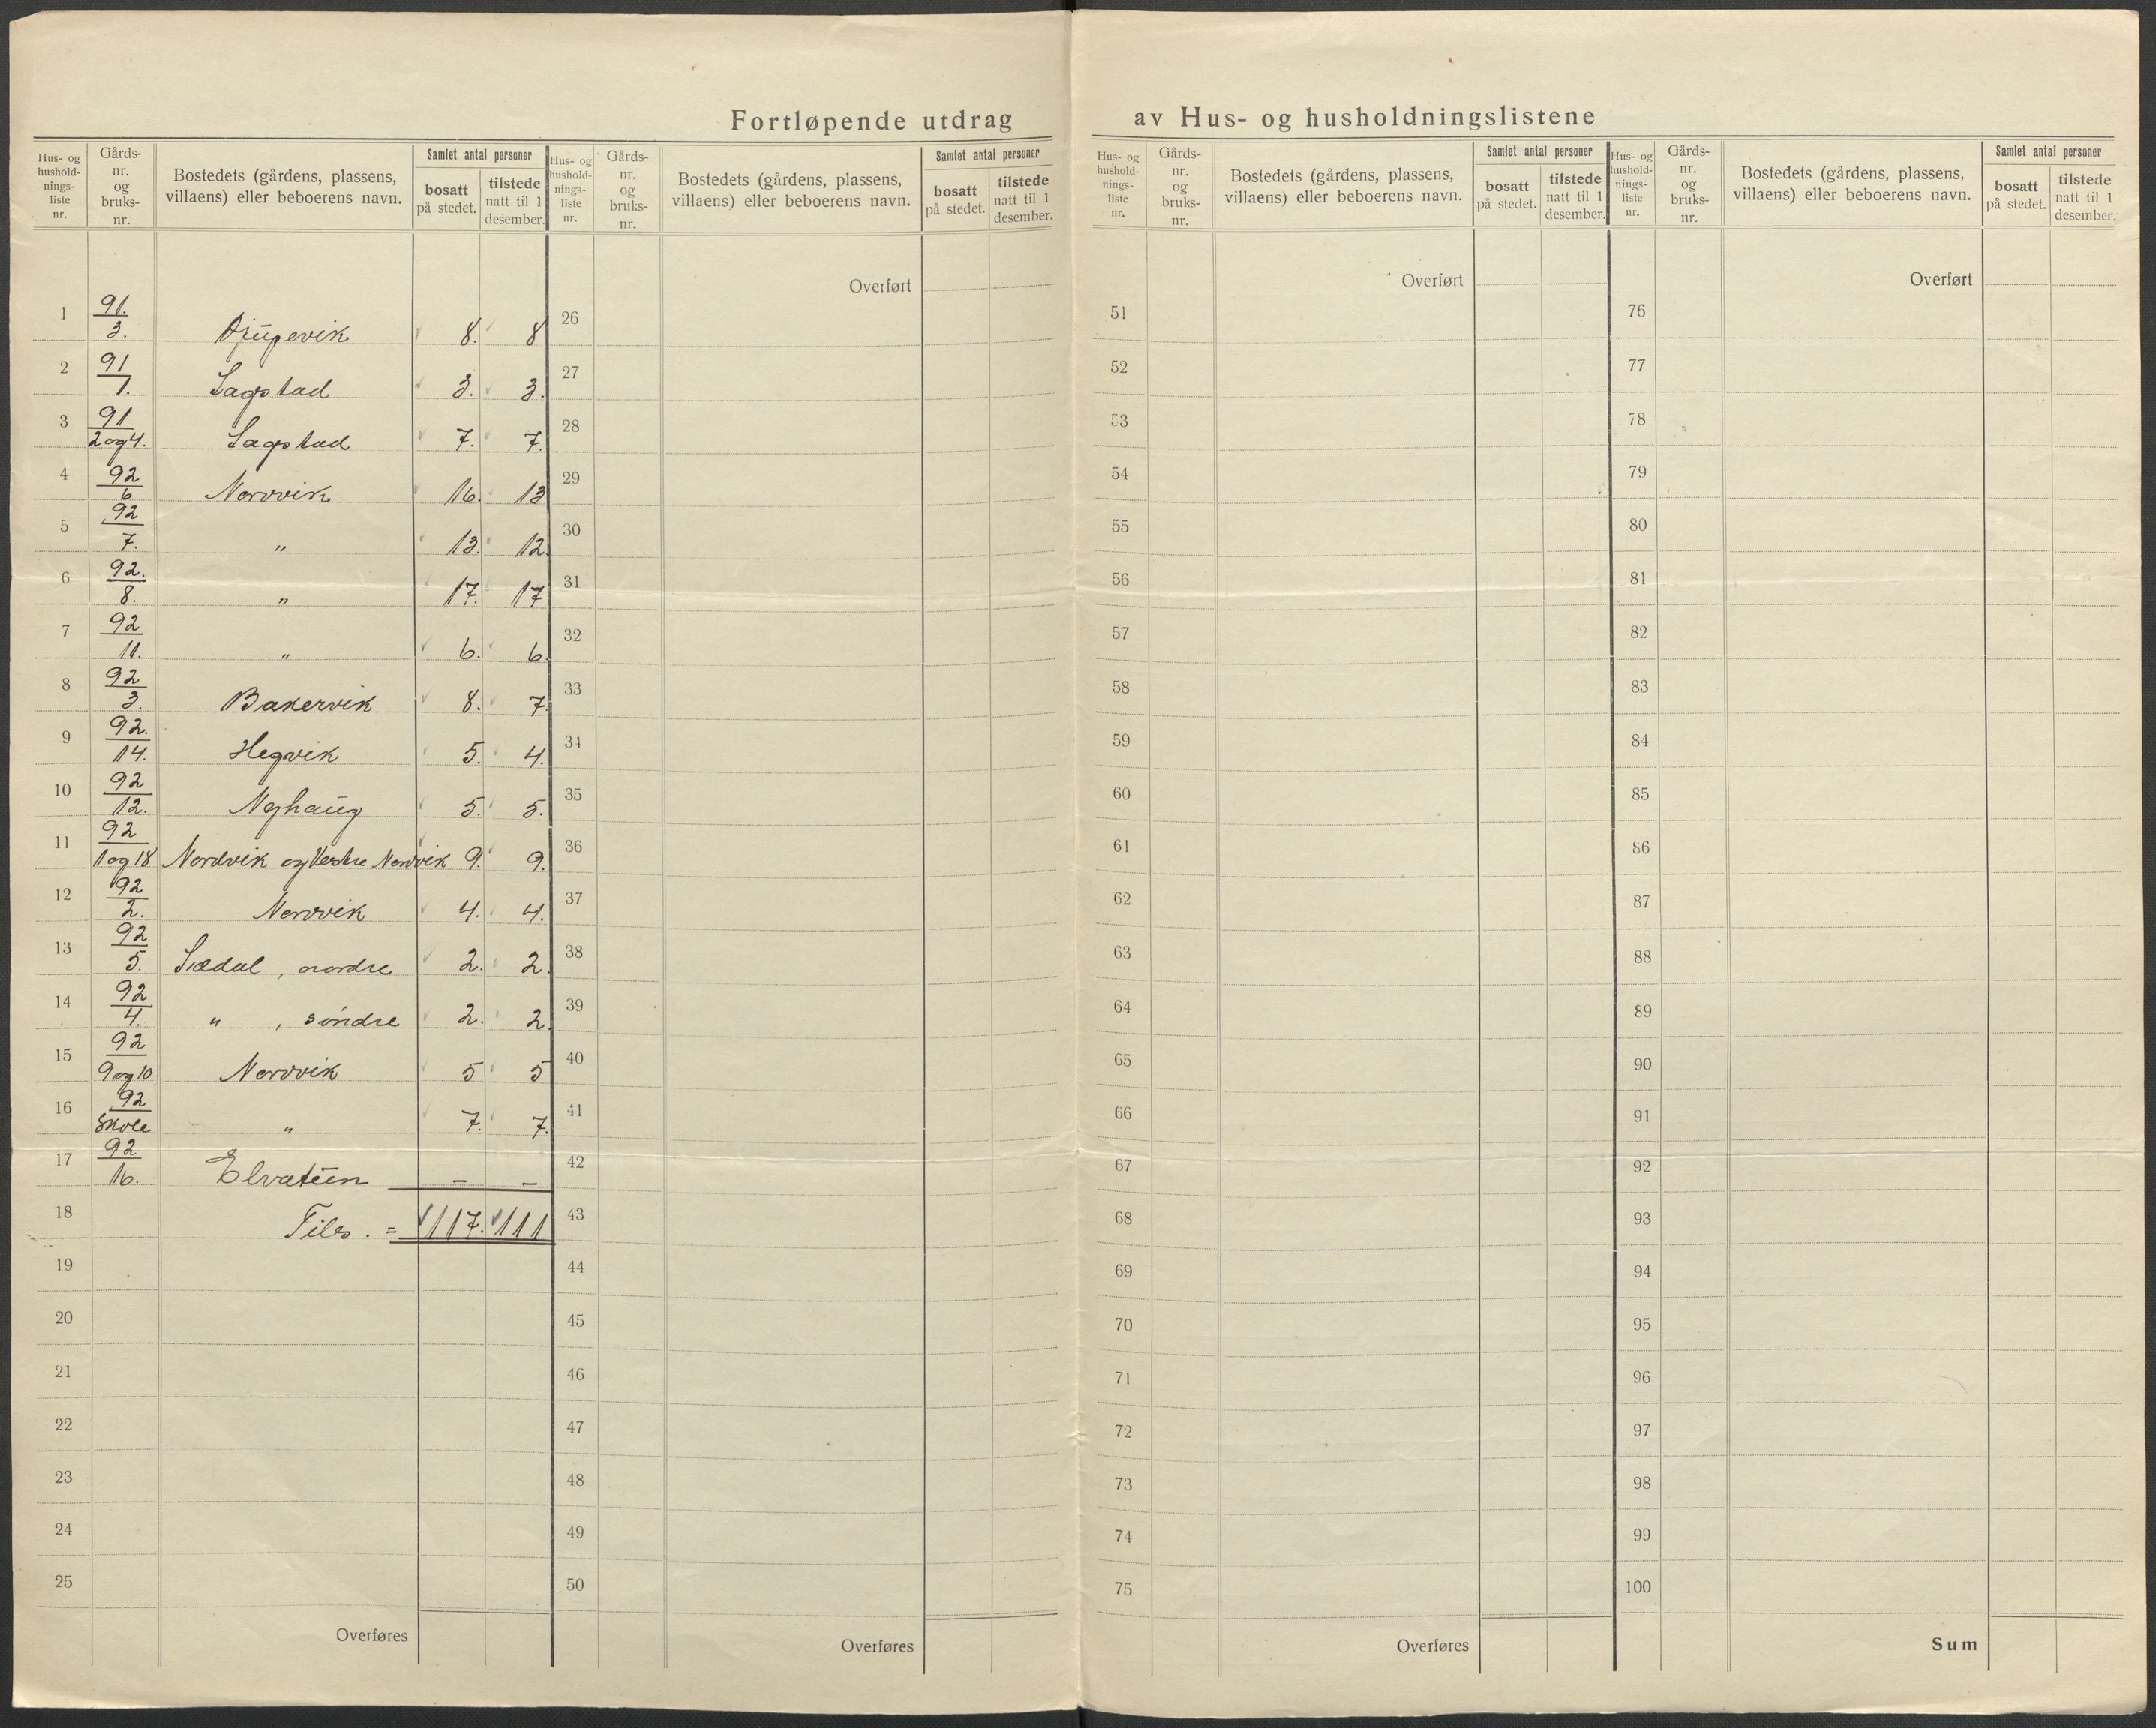 Fortløpende utdrag av Hus- og husholdningslistene
Hus- og hushold-nings-liste nr. Gårds-nr. og bruks-nr. Bostedets (gårdens, plassens, villaens) eller beboerens navn. Samlet antal personer bosatt på stedet. tilstede natt til 1 desember.
1 91./3. Djupevik 8. 8
2 91/1. Sagstad 3. 3.
3 91/2 og 4. Sagstad 7. 7.
4 92/6 Norvvik 16. 13
5 92/7. " 13. 12
6 92./8. " 17. 17
7 92/11. " 6. 6.
8 92/3. Bakervik 8. 7.
9 92./14. Hegvik 5. 4.
10 92/12. Nyhaug 5. 5.
11 92/1 og 18 Nordvik og Vestre Nordvik 9. 9.
12 92/2. Norvvik 4. 4.
13 92/5. Sædal, nordre 2. 2.
14 92/4. " , søndre 2. 2.
15 92/9 og 10 Norvvik 5 5
16 92/Skole " 7. 7.
17 92/16. Elvatun – –
18 Tils. = 117. 111
19
20
21
22
23
24
25
Overføres
Hus- og hushold-nings-liste nr. Gårds-nr. og bruks-nr. Bostedets (gårdens, plassens, villaens) eller beboerens navn. Samlet antal personer bosatt på stedet. tilstede natt til 1 desember.
Overført
26
27
28
29
30
31
32
33
34
35
36
37
38
39
40
41
42
43
44
45
46
47
48
49
50
Overføres
Hus- og hushold-nings-liste nr. Gårds-nr. og bruks-nr. Bostedets (gårdens, plassens, villaens) eller beboerens navn. Samlet antal personer bosatt på stedet. tilstede natt til 1 desember.
Overført
51
52
53
54
55
56
57
58
59
60
61
62
63
64
65
66
67
68
69
70
71
72
73
74
75
Overføres
Hus- og hushold-nings-liste nr. Gårds-nr. og bruks-nr. Bostedets (gårdens, plassens, villaens) eller beboerens navn. Samlet antal personer bosatt på stedet. tilstede natt til 1 desember.
Overført
76
77
78
79
80
81
82
83
84
85
86
87
88
89
90
91
92
93
94
95
96
97
98
99
100
Sum